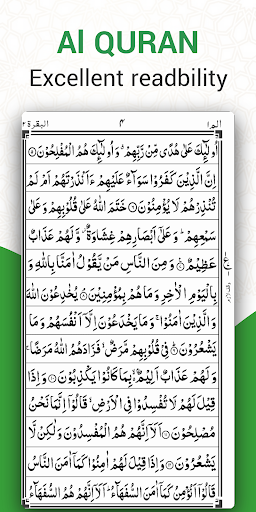 Al QURAN
Excellent readbility
البقرة ٢
٤
الٓمّٓ ١
اُولٰٓئِكَ عَلٰى هُدًى مِّنْ رَّبِّهِمْ ۙ وَ اُولٰٓئِكَ هُمُ الْمُفْلِحُوْنَ ۝
اِنَّ الَّذِيْنَ كَفَرُوْا سَوَآءٌ عَلَيْهِمْ ءَاَنْذَرْتَهُمْ اَمْ لَمْ
تُنْذِرْهُمْ لَا يُؤْمِنُوْنَ ۝ خَتَمَ اللّٰهُ عَلٰى قُلُوْبِهِمْ وَ عَلٰى
سَمْعِهِمْ ؕ وَ عَلٰٓى اَبْصَارِهِمْ غِشَاوَةٌ ۫ وَّ لَهُمْ عَذَابٌ
عَظِيْمٌ ۝ وَ مِنَ النَّاسِ مَنْ يَّقُوْلُ اٰمَنَّا بِاللّٰهِ وَ
بِالْيَوْمِ الْاٰخِرِ وَ مَا هُمْ بِمُؤْمِنِيْنَ ۝ يُخٰدِعُوْنَ اللّٰهَ
وَ الَّذِيْنَ اٰمَنُوْا ۚ وَ مَا يَخْدَعُوْنَ اِلَّاۤ اَنْفُسَهُمْ وَ مَا
يَشْعُرُوْنَ ۝ فِيْ قُلُوْبِهِمْ مَّرَضٌ ۙ فَزَادَهُمُ اللّٰهُ مَرَضًا ۚ
وَ لَهُمْ عَذَابٌ اَلِيْمٌۢ ۙ بِمَا كَانُوْا يَكْذِبُوْنَ ۝ وَ اِذَا
قِيْلَ لَهُمْ لَا تُفْسِدُوْا فِي الْاَرْضِ ۙ قَالُوْۤا اِنَّمَا نَحْنُ
مُصْلِحُوْنَ ۝ اَلَاۤ اِنَّهُمْ هُمُ الْمُفْسِدُوْنَ وَ لٰكِنْ لَّا
يَشْعُرُوْنَ ۝ وَ اِذَا قِيْلَ لَهُمْ اٰمِنُوْا كَمَاۤ اٰمَنَ النَّاسُ
قَالُوْۤا اَنُؤْمِنُ كَمَاۤ اٰمَنَ السُّفَهَآءُ ؕ اَلَاۤ اِنَّهُمْ هُمُ السُّفَهَآءُ